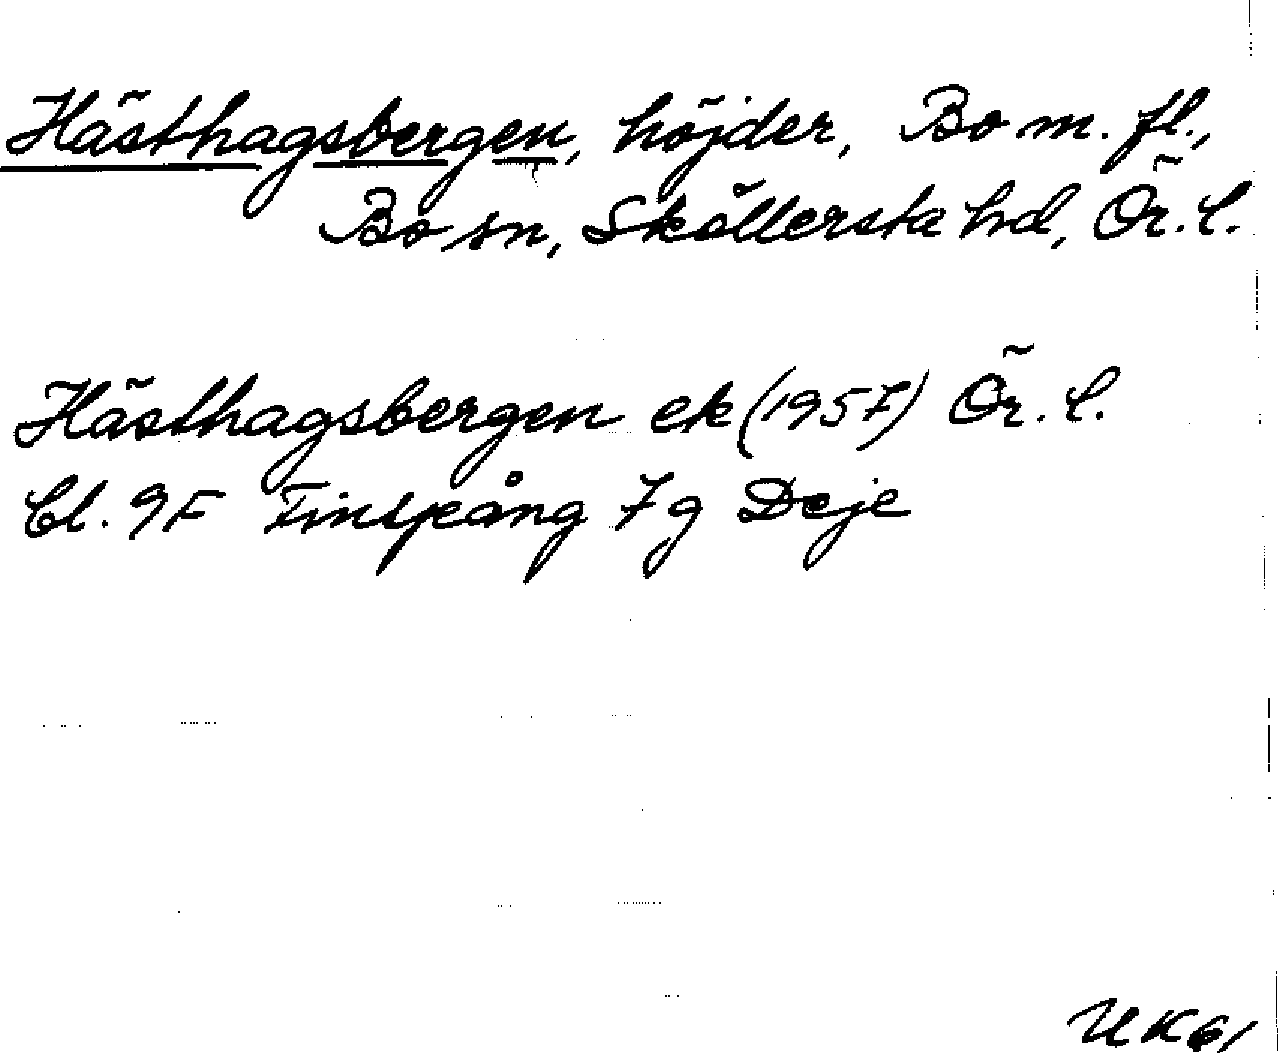 Hästhagsbergen, höjder, Bo m. fl.,
Bo sn, Sköllersta hd, Ör. l.
Hästhagsbergen ek (1957) Ör. l.
Bl. 9F Finspång 7g Deje
UK61